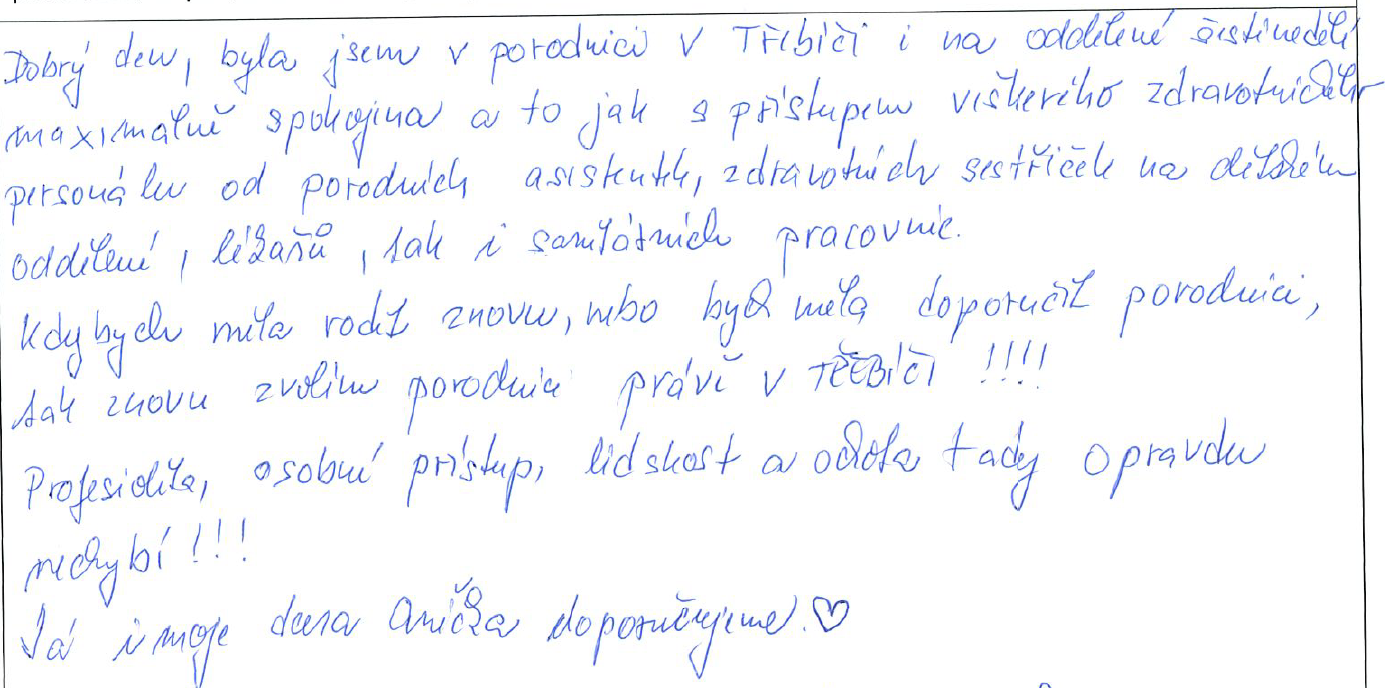 Dobrý den, byla jsem v porodnici v Třebíči i na oddělení šestinedělí
maximálně spokojena a to jak s přístupem veškerého zdravotnického
personálu od porodních asistentek, zdravotních sestřiček na dětském
oddělení, lékařů, tak i sanitárních pracovnic.
Kdybych měla rodit znovu, nebo bych měla doporučit porodnici,
tak znovu zvolím porodnici právě v TŘEBÍČI !!!!
Profesionalita, osobní přístup, lidskost a ochota tady opravdu
nechybí !!!
Já i moje dcera Anička doporučujeme. ♡